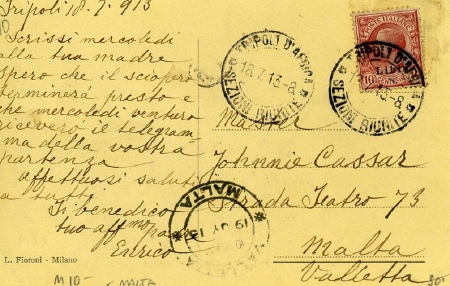 Tripoli 18.7.913
Scrissi mercoledi
alla tua madre
spero che il sciopero
terminerà presto e
che mercoledi venturo
riceverò il telegram
ma della vostra
partenza
affettuosi saluti
a tutti
Ti benedico
tuo aff.mo
Enrico
L. Fioroni - Milano
M10-
MALTA
TRIPOLI D'AFRICA
18.7.13-8
SEZIONI RIUNITE
TRIPOLI D'AFRICA
13-8
SEZIONI RIUNITE
POSTE ITALIANE
10
Johnnie Cassar
Strada Teatro 73
Malta
Valletta
MALTA
19 JY 13
VALLETTA
30-